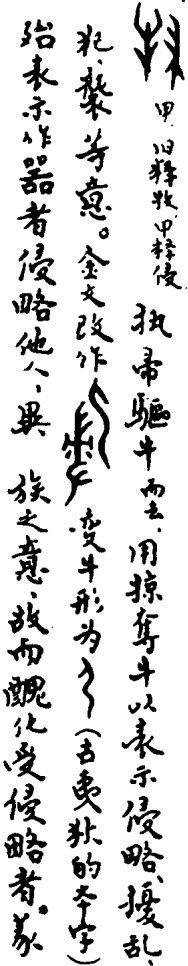 甲.旧釋牧,甲釋侵 執帚驅牛而去,用掠奪牛以表示侵略、擾乱、
犯、襲等意。金文改作 ,变牛形为 (古夷狄的本字)
殆表示作器者侵略他人、異族之意,故而醜化受侵略者。篆